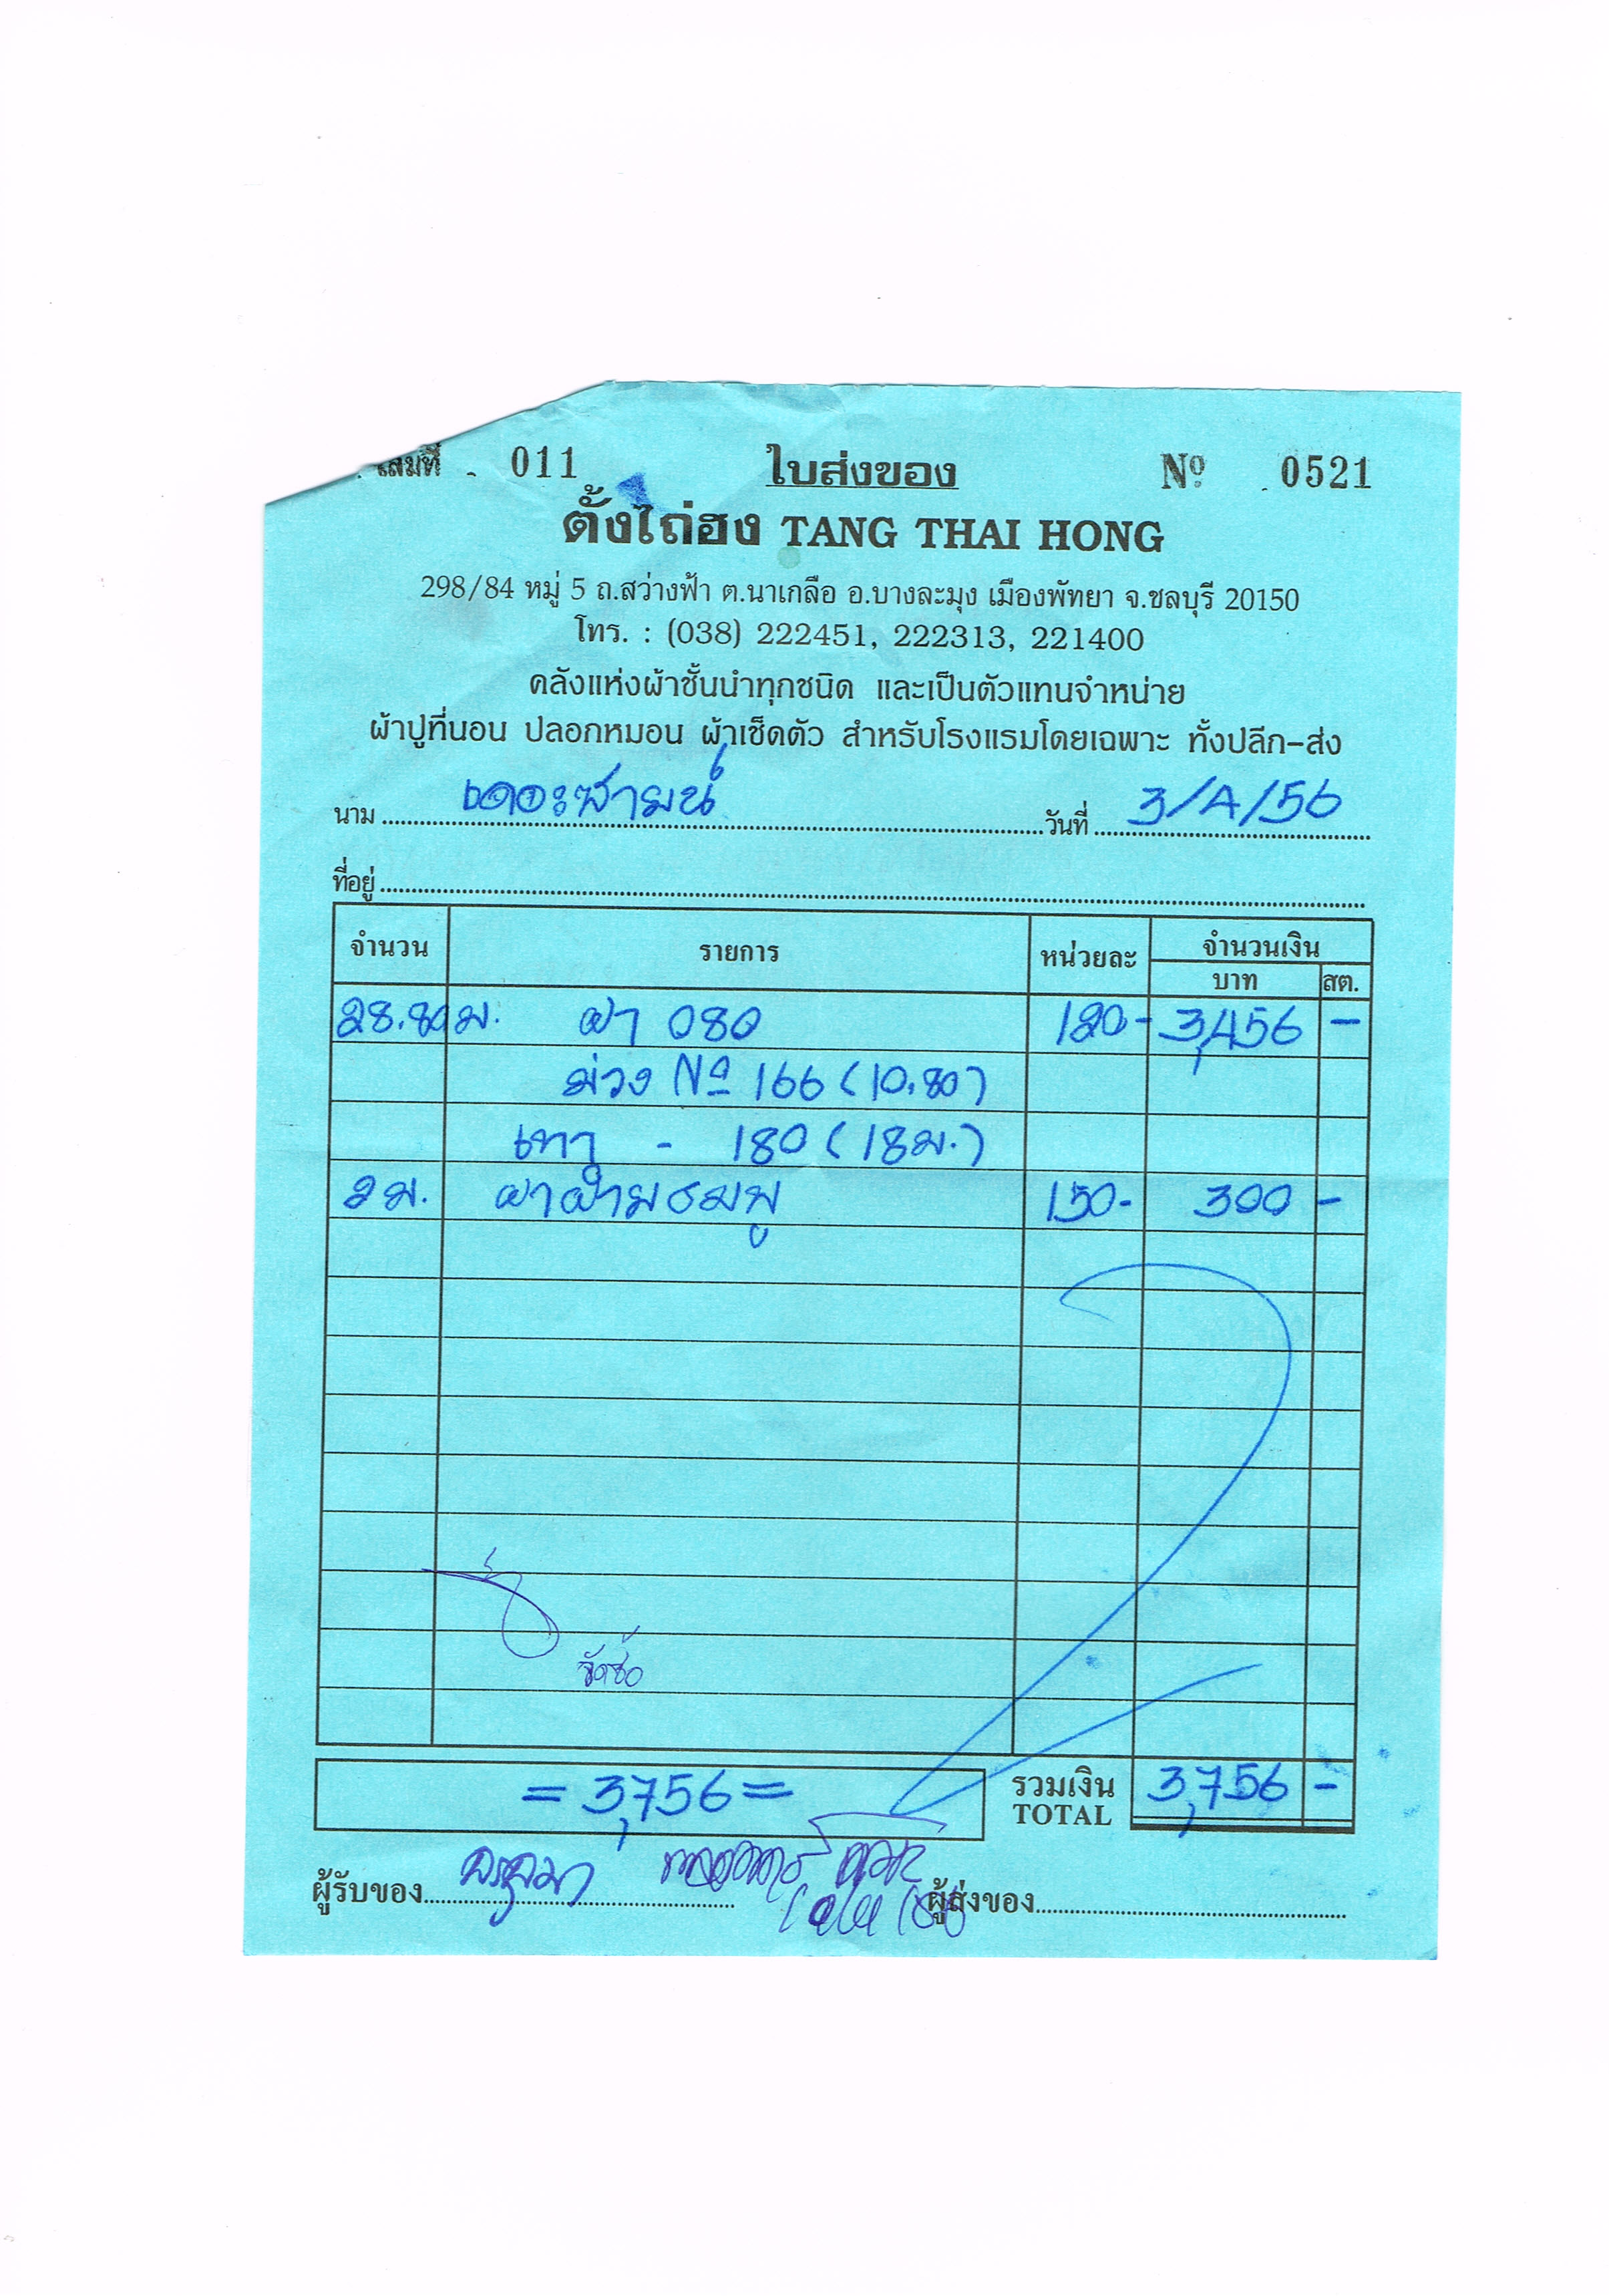 เล่มที่ 011 ใบส่งของ Nº 0521
ตั้งไถ่ฮง TANG THAI HONG
298/84 หมู่ 5 ถ.สว่างฟ้า ต.นาเกลือ อ.บางละมุง เมืองพัทยา จ.ชลบุรี 20150
โทร. : (038) 222451, 222313, 221400
คลังแห่งผ้าชั้นนำทุกชนิด และเป็นตัวแทนจำหน่าย
ผ้าปูที่นอน ปลอกหมอน ผ้าเช็ดตัว สำหรับโรงแรมโดยเฉพาะ ทั้งปลีก-ส่ง
นาม เดอะซายน์ วันที่ 3/A/56
ที่อยู่
จำนวน รายการ หน่วยละ จำนวนเงิน
บาท สต.
28.80 ม. ผา 080 120- 3,456 -
ม่วง Nº 166 (10.80)
เทา - 180 (18ม.)
2 ม. ผาฝ้ายชมพู 150- 300 -
จัดซื้อ
= 3,756 = รวมเงิน 3,756 -
TOTAL
ผู้รับของ ผู้ส่งของ